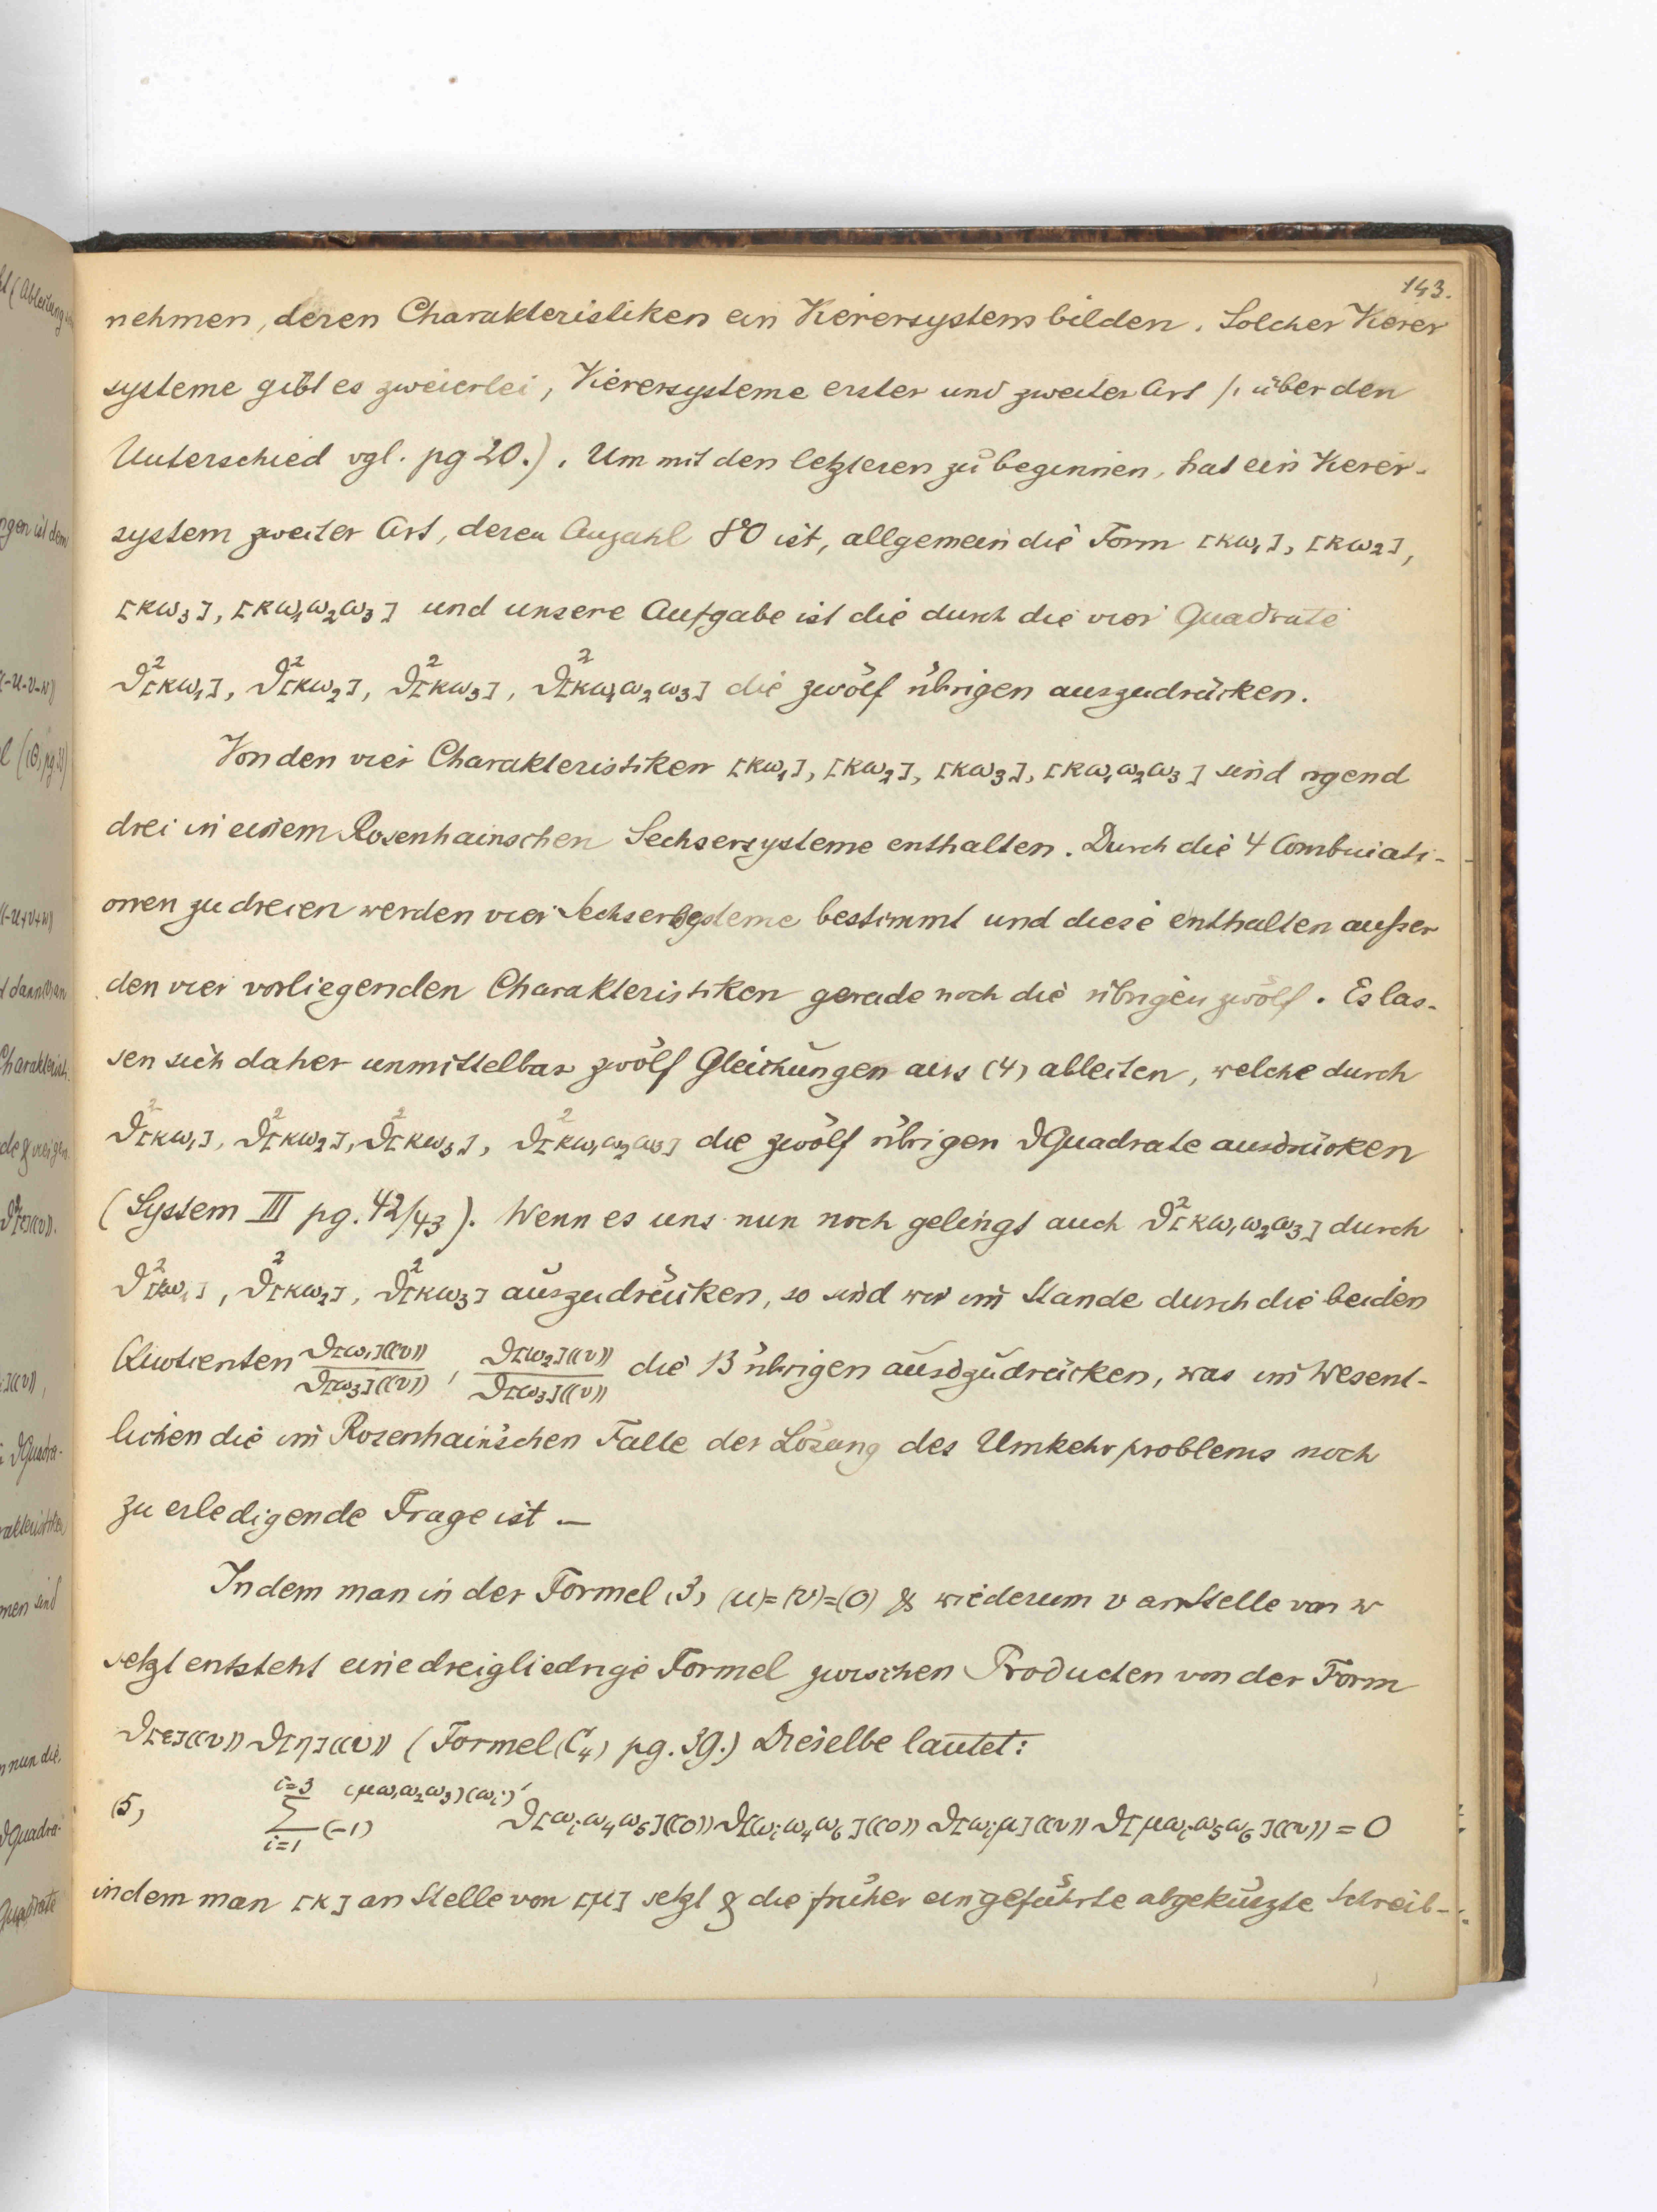 143.
nehmen, deren Charakteristiken ein Vierersystem bilden. Solcher Vierer
systeme gibt es zweierlei, Vierersysteme erster und zweiter Art /: über den
Unterschied vgl. pg 20.). Um mit den letzteren zu beginnen, hat ein Vierer-
system zweiter Art, deren Anzahl 80 ist, allgemein die Form [κω₁], [κω₂],
[κω₃], [κω₁ω₂ω₃] und unsere Aufgabe ist die durch die vier Quadrate
ϑ²[κω₁], ϑ²[κω₂], ϑ²[κω₃], ϑ²[κω₁ω₂ω₃] die zwölf übrigen auszudrücken.
Von den vier Charakteristiken [κω₁], [κω₂], [κω₃], [κω₁ω₂ω₃] sind irgend
drei in einem Rosenhainschen Sechsersysteme enthalten. Durch die 4 Combinati-
onen zu dreien werden vier Sechsersysteme bestimmt und diese enthalten außer
den vier vorliegenden Charakteristiken gerade noch die übrigen zwölf. Es las-
sen sich daher unmittelbar zwölf Gleichungen aus (4) ableiten, welche durch
ϑ²[κω₁], ϑ²[κω₂], ϑ²[κω₃], ϑ²[κω₁ω₂ω₃] die zwölf übrigen ϑQuadrate ausdrücken
(System III pg. 42/43). Wenn es uns nun noch gelingt auch ϑ²[κω₁ω₂ω₃] durch
ϑ²[κω₁], ϑ²[κω₂], ϑ²[κω₃] auszudrücken, so sind wir im Stande durch die beiden
Quotienten ϑ[ω₁]((v))/ϑ[ω₃]((v)), ϑ[ω₂]((v))/ϑ[ω₃]((v)) die 13 übrigen auszudrücken, was im Wesent-
lichen die im Rosenhain'schen Falle der Lösung des Umkehrproblems noch
zu erledigende Frage ist. —
Indem man in der Formel (3) (u)=(v)=(0) & wiederum v an Stelle von w
setzt entsteht eine dreigliedrige Formel zwischen Producten von der Form
ϑ[ε]((v)) ϑ[η]((v)) (Formel (C₄) pg. 39.) Dieselbe lautet:
(5) Σ_{i=1}^{i=3} (-1)^{(μω₁ω₂ω₃)(ω_i)'} ϑ[ω_iω₄ω₅]((0)) ϑ[ω_iω₄ω₆]((0)) ϑ[ω_iμ]((v)) ϑ[μω_iω₅ω₆]((v)) = 0
indem man [κ] an Stelle von [μ] setzt & die früher eingeführte abgekürzte Schreib-